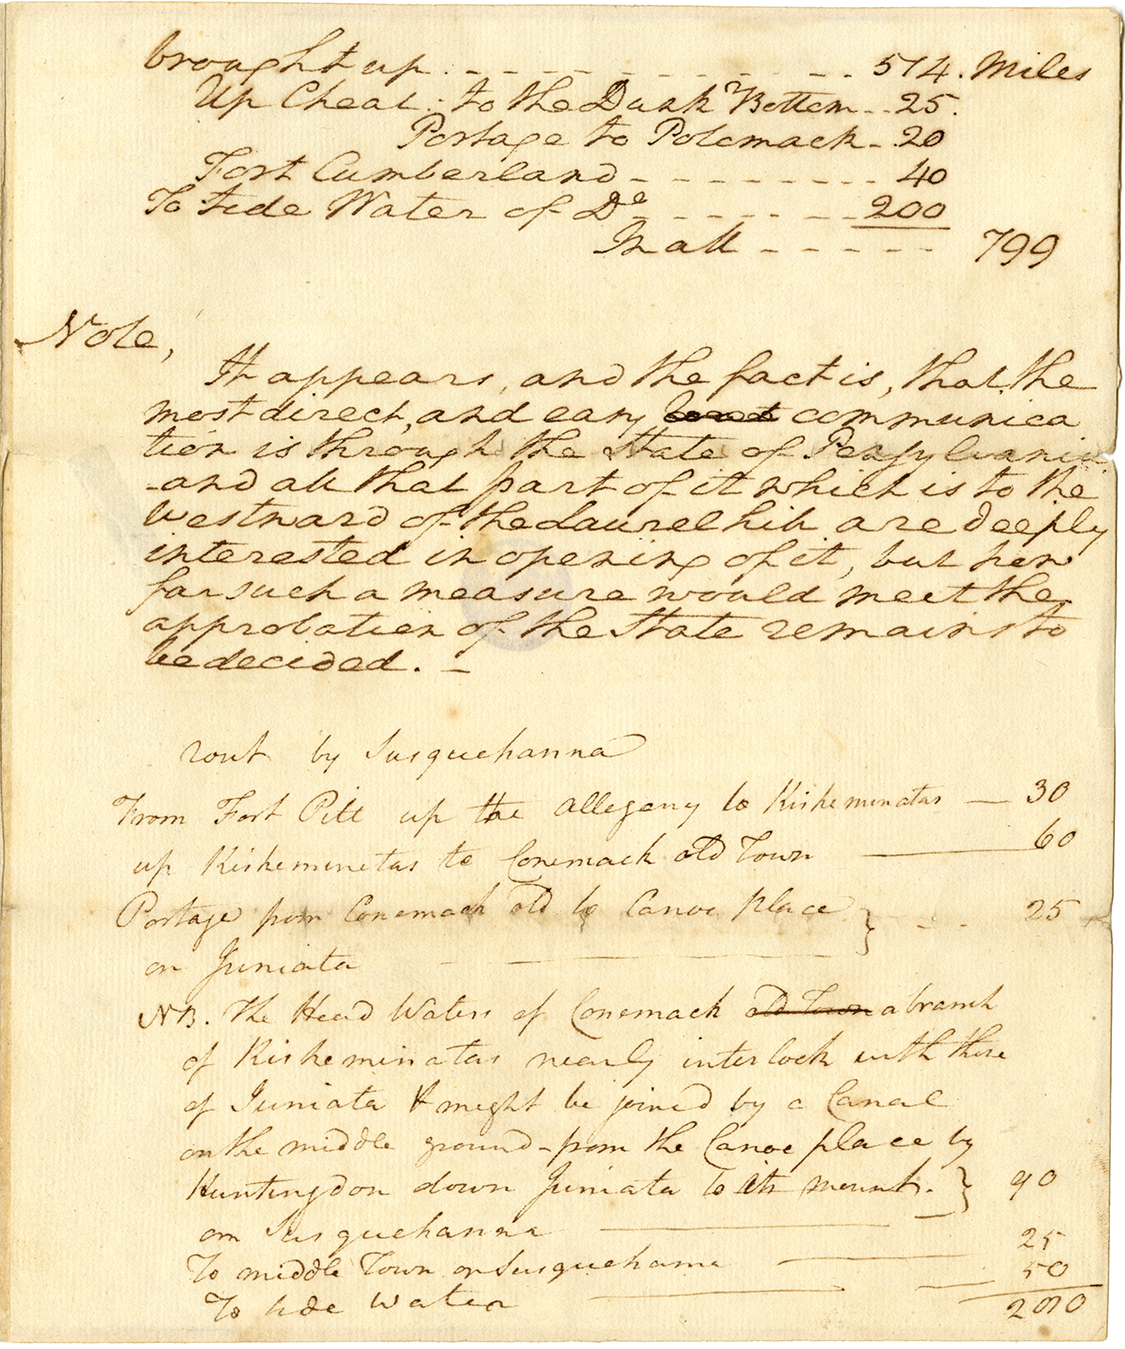 brought up. - - - - - - - - - - 574. Miles
Up Cheat. to the Dunk Bottom - - 25.
Portage to Potomack - . 20
Fort Cumberland - - - - - - - - 40
To tide Water of Do - - - - - - 200
In all - - - - - 799
Note,
It appears, and the fact is, that the
most direct, and easy communica
tion is through the State of Pensylvania
and all that part of it which is to the
Westward of the Laurel hill are deeply
interested in opening of it, but how
far such a measure would meet the
approbation of the State remains to
be decided. -
rout by Susquehanna
From Fort Pitt up the Allegany to Kisheminatas — 30
up Kisheminetas to Conemack old Town — 60
Portage from Conemack old to Canoe Place } - - - 25
on Juniata
NB. The Head Waters of Conemack old Town a branch
of Kisheminatas nearly interlock with those
of Juniata & might be joined by a Canal
on the middle ground - from the Canoe place by
Huntingdon down Juniata to its mouth. } 90
on Susquehanna
To middle Town on Susquehanna — 25
To tide Water — 50